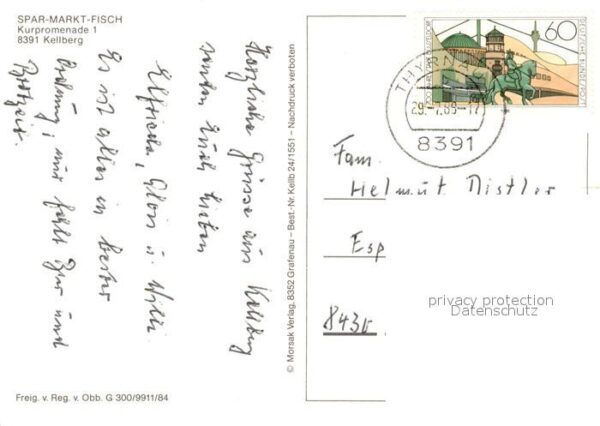 SPAR-MARKT-FISCH
Kurpromenade 1
8391 Kellberg
Herzliche Grüsse aus Kellberg
senden Euch Lieben
Elfriede, u. Willi.
Es ist alles in bester
Ordnung, nur fehlt Ihr und
Freig. v. Reg. v. Obb. G 300/9911/84
© Morsak Verlag, 8352 Grafenau – Best.-Nr. Kellb 24/1551 – Nachdruck verboten
60
DEUTSCHE BUNDESPOST
THYRNAU
29.-7.88-17
8391
Fam.
Helmut Distler
Esp
8430
privacy protection
Datenschutz